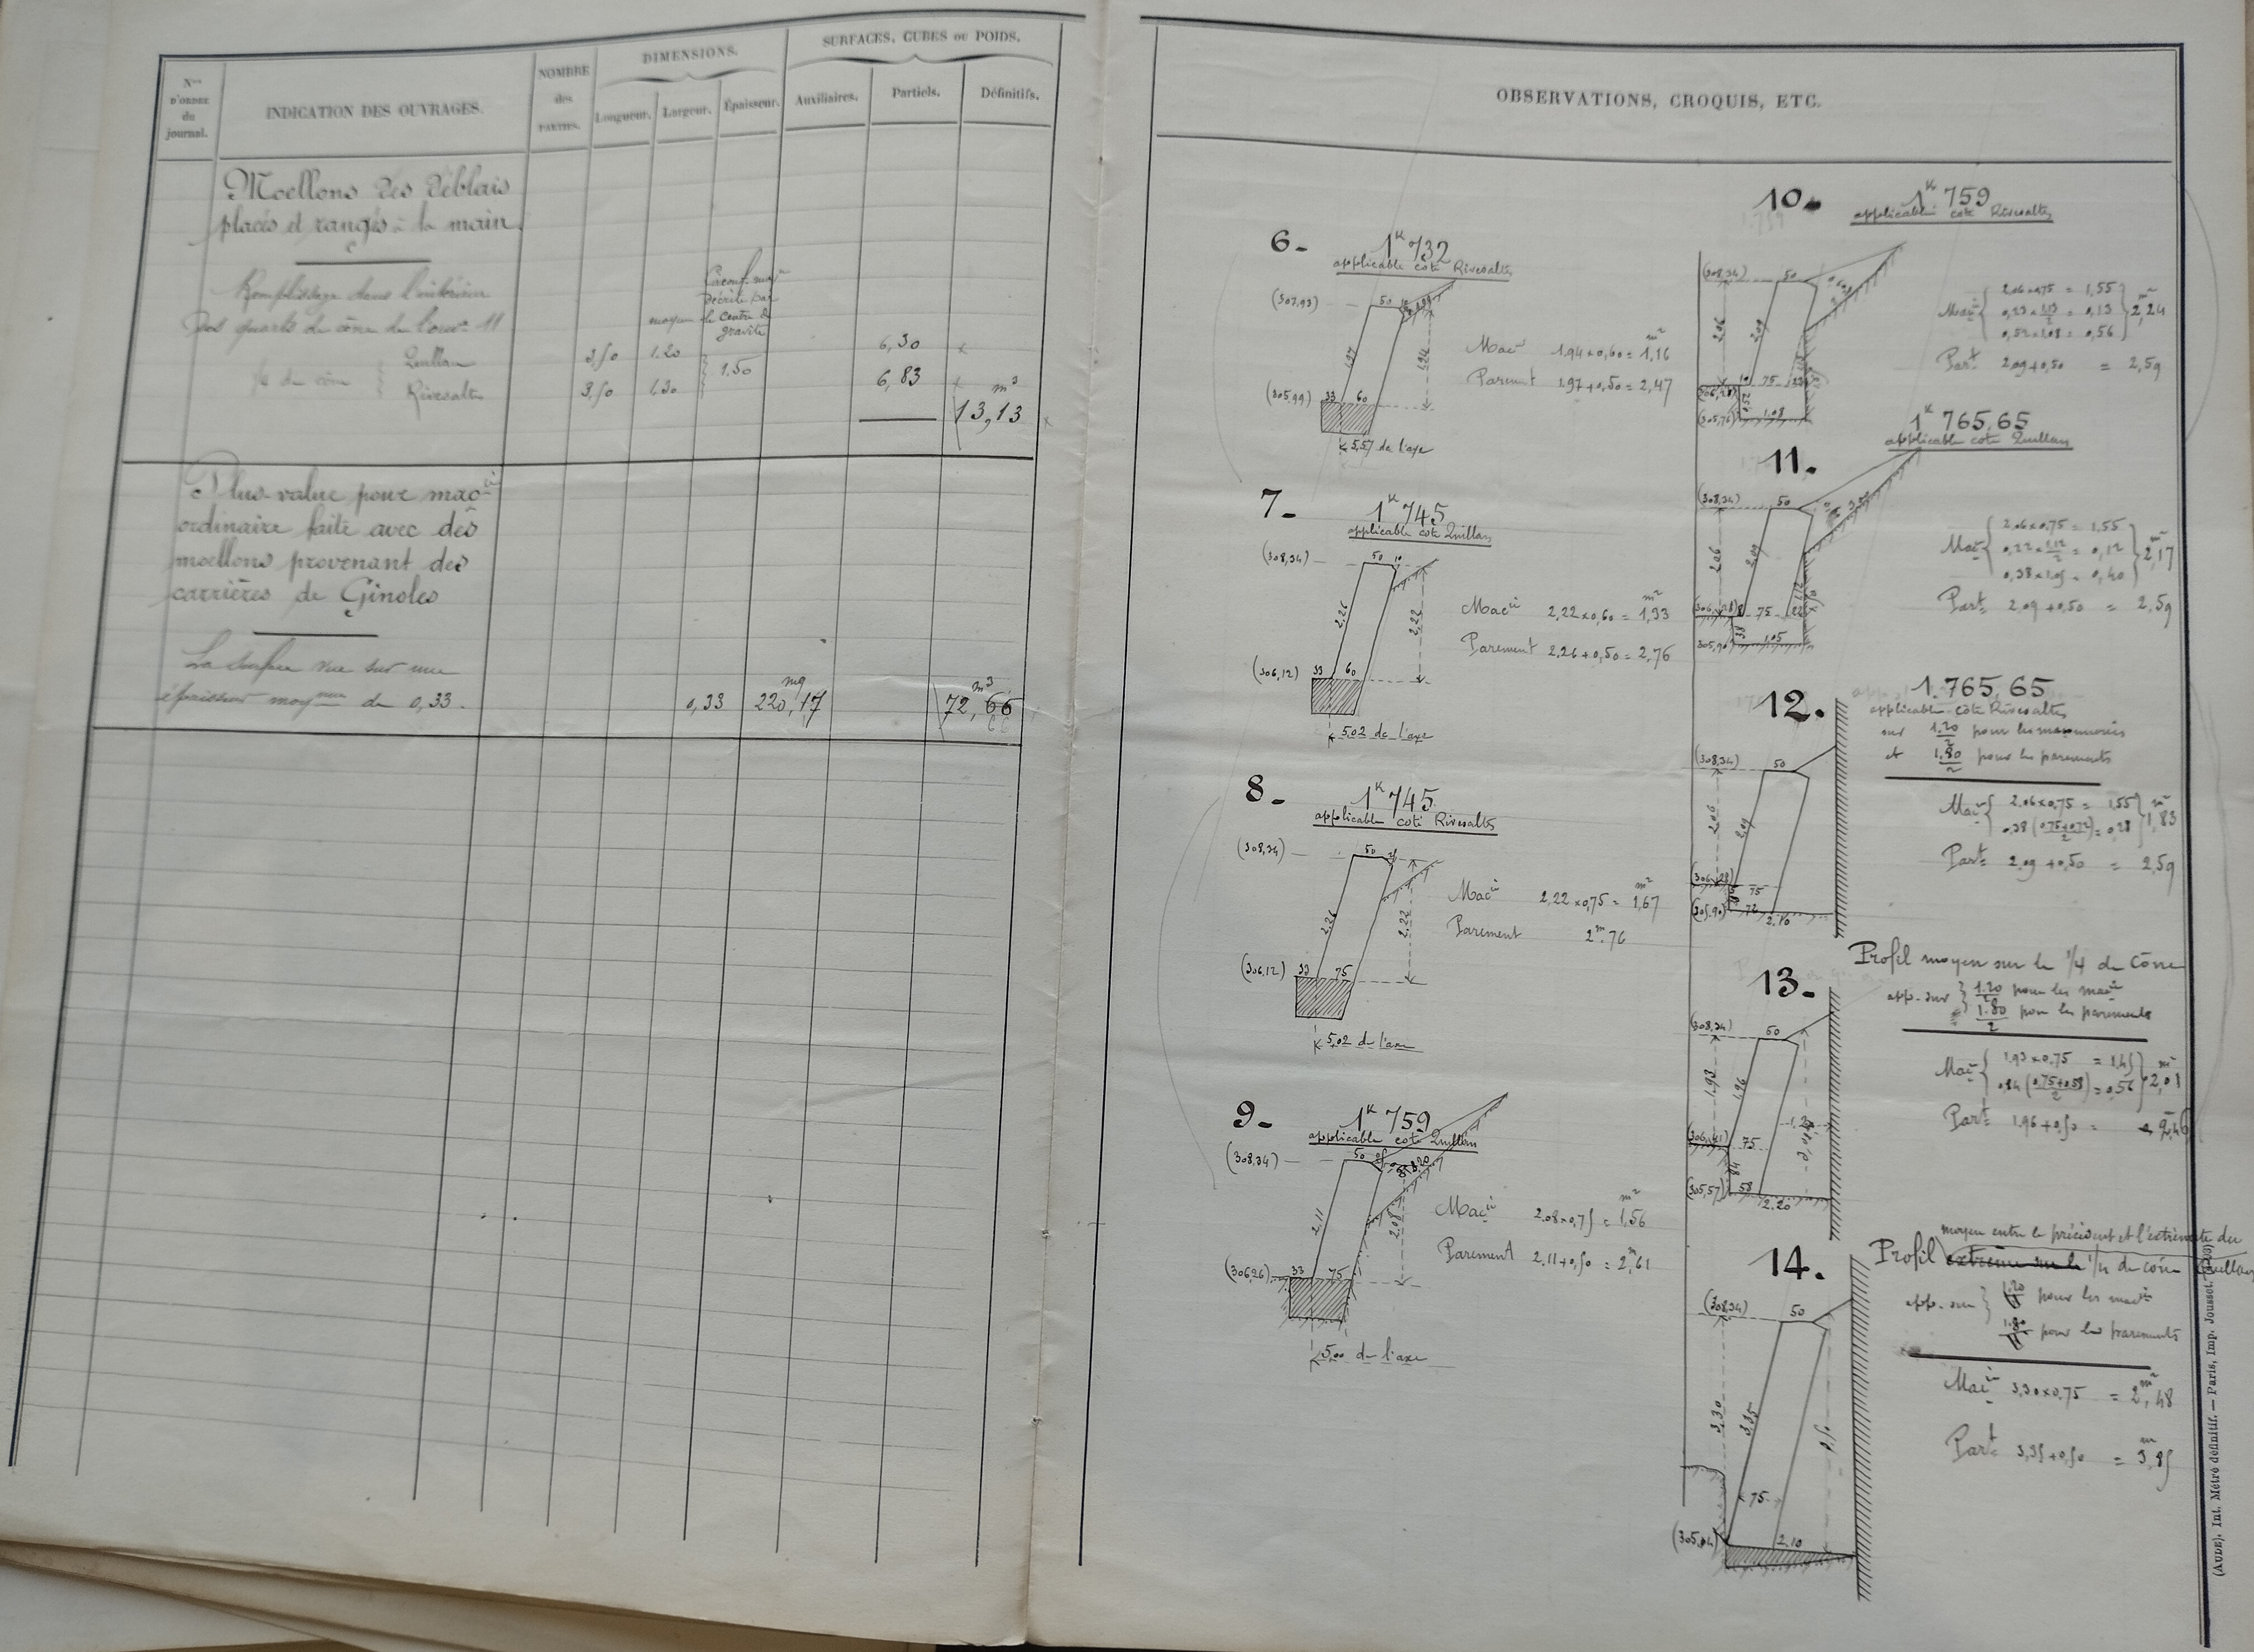 Nos D'ORDRE du journal.
INDICATION DES OUVRAGES.
NOMBRE des PARTIES.
DIMENSIONS.
Longueur. Largeur. Épaisseur.
SURFACES, CUBES ou POIDS.
Auxiliaires. Partiels. Définitifs.
Moellons des déblais
placés et rangés à la main
Remplissage dans l'intérieur
Des quarts de cône de l'ouv. 11
décrite par
moyen le centre de
gravité
¼ de cône
Quillan 3,50 1.20 1.50 6,30
Rivesaltes 3,50 1.30 6,83
m3
13,13
Plus-value pour mac.ie
ordinaire faite avec des
moellons provenant des
carrières de Ginoles
La surface vue sur une
épaisseur moyenne de 0,33. 0,33 220,17 mq 72,66 m3
OBSERVATIONS, CROQUIS, ETC.
6- 1K 732
applicable coté Rivesaltes
(307,93) 50
1,97 1,94
(305,99) 33 60
5,57 de l'axe
Mac.ie 1.94 x 0,60 = 1,16 m2
Parement 1.97 + 0,50 = 2,47
7- 1K 745
applicable coté Quillan
(308,34) 50 10
2,26 2,22
(306,12) 33 60
5.02 de l'axe
Mac.ie 2,22 x 0,60 = 1,33 m2
Parement 2,26 + 0,50 = 2,76
8- 1K 745
applicable coté Rivesaltes
(308,34) 50
2,26 2,22
(306,12) 33 75
5,02 de l'axe
Mac.ie 2,22 x 0,75 = 1,67 m2
Parement 2m.76
9- 1K 759
applicable coté Quillan
(308,34) 50
2,11 2,08
(306,26) 33 75
5,00 de l'axe
Mac.ie 2.08 x 0,75 = 1,56 m2
Parement 2.11 + 0,50 = 2m,61
10. 1K 759
applicable coté Rivesaltes
(308,34) 50
2,06 2,09
(306,28) 10 75
(305,76) 1,08
Mac.ie 2.06 x 0,75 = 1,55
0,23 x 1,13/2 = 0,13
0,52 x 1,08 = 0,56
2,24 m2
Part. 2,09 + 0,50 = 2,59
1K 765,65
applicable coté Quillan
11.
(308,34) 50
2,06 2,09
(306,28) 8 75 22
305,90 1,05
Mac.ie 2.06 x 0,75 = 1,55
0,22 x 1,12/2 = 0,12
0,38 x 1.05 = 0,40
2,17 m2
Part. 2,09 + 0,50 = 2,59
12. 1.765,65
applicable côté Rivesaltes
sur 1.20/2 pour les maçonneries
et 1.80/2 pour les parements
(308,34) 50
2,06 2,09
(306,28) 75
(305,90) 72 2.10
Mac.ie 2.06 x 0,75 = 1,55
0,38 (0,75+0,72/2) = 0,28
1,83 m2
Part. 2.09 + 0,50 = 2,59
13. Profil moyen sur le ¼ de Cône
app. sur 1.20/2 pour les mac.ie
1.80/2 pour les parements
(308,34) 50
1,93 1,96
(306,41) 75
(305,57) 84 58 2.20
Mac.ie 1.93 x 0,75 = 1,45
0,84 (0,75+0,58/2) = 0,56
2,01 m2
Part. 1,96 + 0,50 = 2,46
moyen entre le précédent et l'extrémité du
14. Profil extrême sur le ¼ de cône Quillan
app. sur 1.20 pour les mac.ie
1.80 pour les parements
(308,34) 50
3,30 3,35
75
(305,04) 2.10
Mac.ie 3,30 x 0,75 = 2,48 m2
Part. 3,35 + 0,50 = 3m,85
(AUDE). Int. Métré définitif. — Paris, Imp. Jousset.